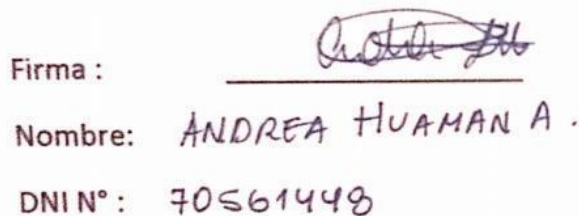 Firma :
Nombre: ANDREA HUAMAN A .
DNI N° : 70561448